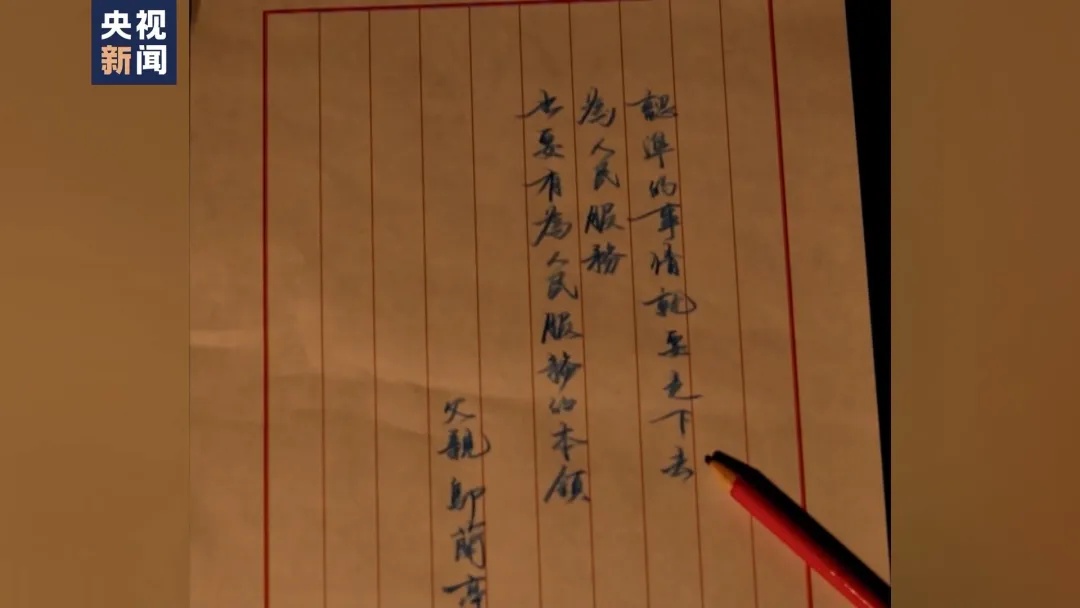 央视
新闻
認準的事情就要走下去
為人民服務
也要有為人民服務的本領
父親 鄔蘭亭